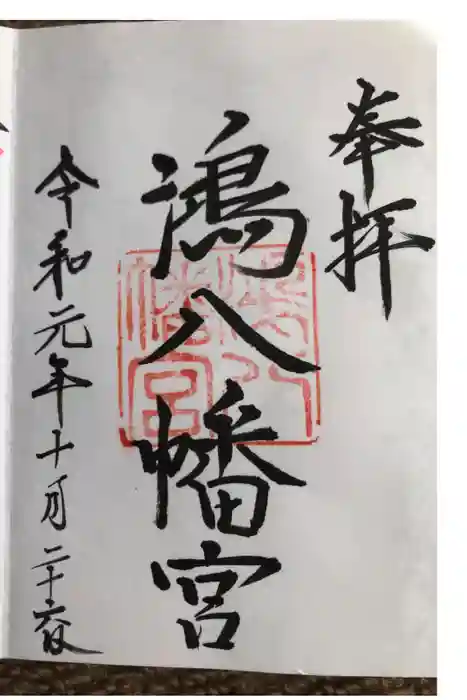 奉拝
鴻八幡宮
令和元年十月二十六日